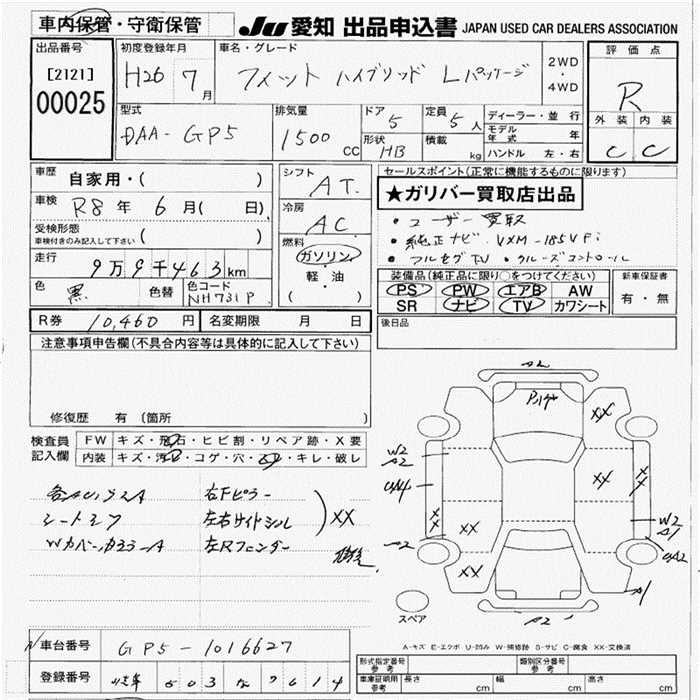 車内保管・守衛保管
JU 愛知 出品申込書 JAPAN USED CAR DEALERS ASSOCIATION
出品番号 [2121] 00025
初度登録年月 H26 7月
車名・グレード フィット ハイブリッド Lパッケージ
2WD・4WD
評価点 R
外装 内装
C C
型式 DAA-GP5
排気量 1500 CC
ドア 5 定員 5人
形状 HB 積載 kg
ディーラー・並行
モデル年式 年
ハンドル 左・右
車歴 自家用・( )
車検 R8年 6月( 日)
受検形態 車検付きのみ記入して下さい ( )
走行 9万9千463km
色 黒 色替 色コード NH731P
シフト AT
冷房 AC
燃料 ガソリン・軽・油 ( )
セールスポイント(正常に機能するものに限ります)
★ガリバー買取店出品
・ユーザー買取
・純正ナビ VXM-185VFi
・フルセグTV ・クルーズコントロール
装備品(純正品に限り○をつけてください)
PS PW エアB AW
SR ナビ TV カワシート
新車保証書 有・無
後日品
R券 10,460円 名変期限 月 日
注意事項申告欄(不具合内容等は具体的に記入して下さい)
修復歴 有(箇所 )
検査員記入欄
FW キズ・飛石・ヒビ割・リペア跡・X要
内装 キズ・汚れ・コゲ・穴・スレ・キレ・破レ
右Fピラー
左右サイドシル XX
左Rフェンダー
A2
XX
W2
A2
XX
XX
XX
XX
XX
W2
A1
A2
A1
XX
A2
スペア
A-キズ E-エクボ U-凹み W-補修跡 S-サビ C-腐食 XX-交換済
車台番号 GP5-1016627
登録番号
形式指定番号 参考 類別区分番号 参考
車庫証明用 参考 長さ cm 幅 cm 高さ cm